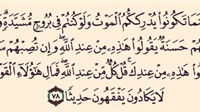 نَمَا تَكُونُوا۟ يُدْرِككُّمُ ٱلْمَوْتُ وَلَوْ كُنتُمْ فِى بُرُوجٍ مُّشَيَّدَةٍ
هُمْ حَسَنَةٌ يَقُولُوا۟ هَٰذِهِۦ مِنْ عِندِ ٱللَّهِ وَإِن تُصِبْهُمْ سَ
وا۟ هَٰذِهِۦ مِنْ عِندِكَ قُلْ كُلٌّ مِّنْ عِندِ ٱللَّهِ فَمَالِ هَٰٓؤُلَآءِ ٱلْقَوْ
لَا يَكَادُونَ يَفْقَهُونَ حَدِيثًا ٧٨